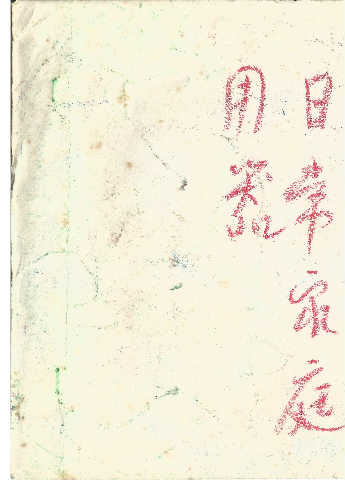 日常家庭
用器